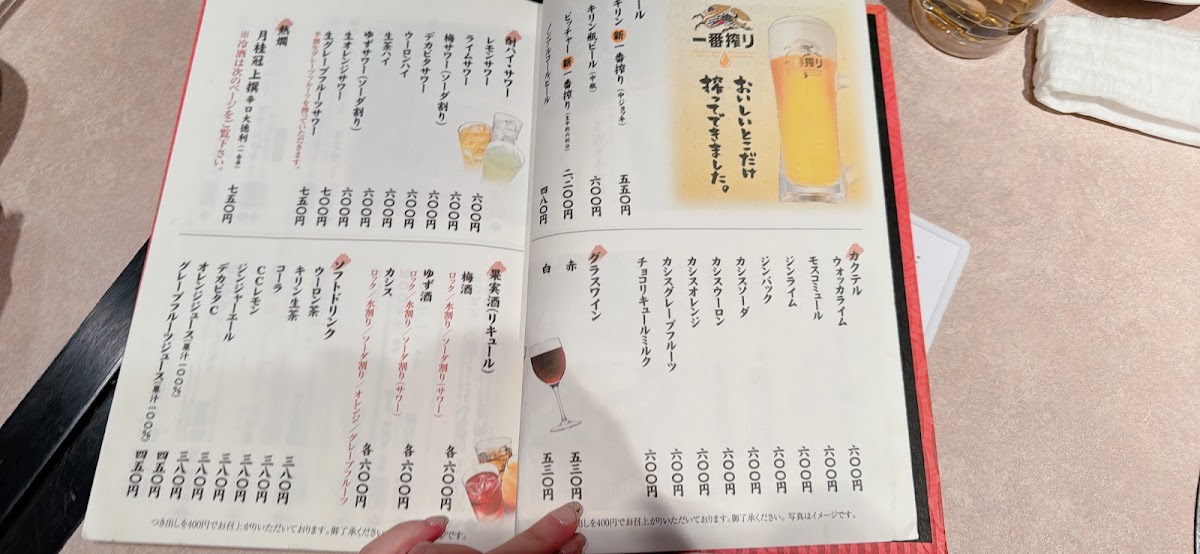 一番搾り
おいしいとこだけ
搾ってできました。
ール
キリン 新 一番搾り(中・ジョッキ) 五五〇円
キリン瓶ビール(中瓶) 六〇〇円
ピッチャー 新 一番搾り 二、二〇〇円
ノンアルコールビール 四八〇円
カクテル
ウォッカライム 六〇〇円
モスコミュール 六〇〇円
ジンライム 六〇〇円
ジンバック 六〇〇円
カシスソーダ 六〇〇円
カシスウーロン 六〇〇円
カシスオレンジ 六〇〇円
カシスグレープフルーツ 六〇〇円
チョコリキュールミルク 六〇〇円
グラスワイン
赤 五三〇円
白 五三〇円
出しを400円でお召上がりいただいております。御了承ください。写真はイメージです。
酎ハイ・サワー
レモンサワー 六〇〇円
ライムサワー 六〇〇円
梅サワー(ソーダ割り) 六〇〇円
デカビタサワー 六〇〇円
ウーロンハイ 六〇〇円
生茶ハイ 六〇〇円
ゆずサワー(ソーダ割り) 六〇〇円
生オレンジサワー 七〇〇円
生グレープフルーツサワー 七五〇円
半割りグレープフルーツを搾っていただきます。
熱燗
月桂冠 上撰 辛口大徳利(二合半) 七五〇円
※冷酒は次のページをご覧下さい。
果実酒(リキュール)
梅酒 各六〇〇円
ロック/水割り/ソーダ割り(サワー)
ゆず酒 各六〇〇円
ロック/水割り/ソーダ割り(サワー)
カシス 各六〇〇円
ロック/水割り/ソーダ割り/オレンジ/グレープフルーツ
ソフトドリンク
ウーロン茶 三八〇円
キリン生茶 三八〇円
コーラ 三八〇円
CCレモン 三八〇円
ジンジャーエール 三八〇円
デカビタC 三八〇円
オレンジジュース(果汁一〇〇%) 四五〇円
グレープフルーツジュース(果汁一〇〇%) 四五〇円
つき出しを400円でお召上がりいただいております。御了承ください。
ージです。